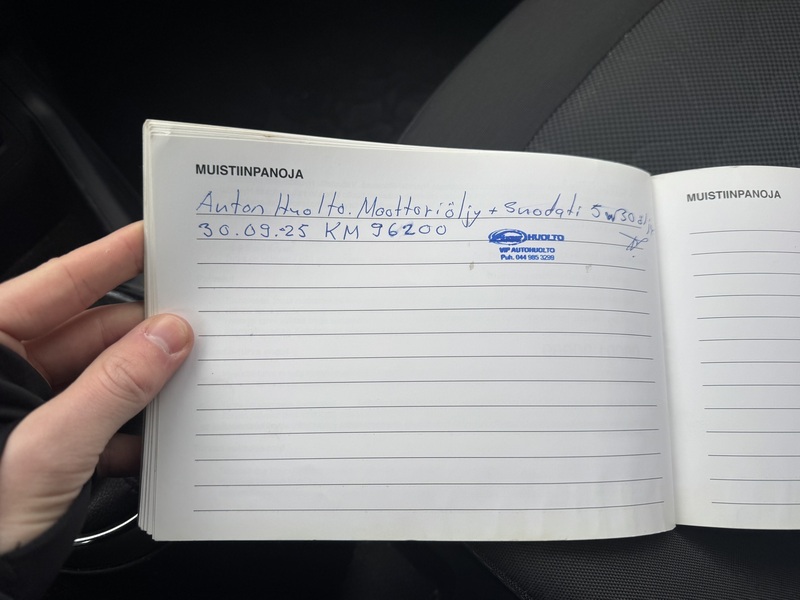 MUISTIINPANOJA
Auton Huolto. Moottoriöljy + Suodati 5w30
30.09.25 KM 96200
HUOLTO
VIP AUTOHUOLTO
Puh. 044 985 3299
MUISTIINPANOJA